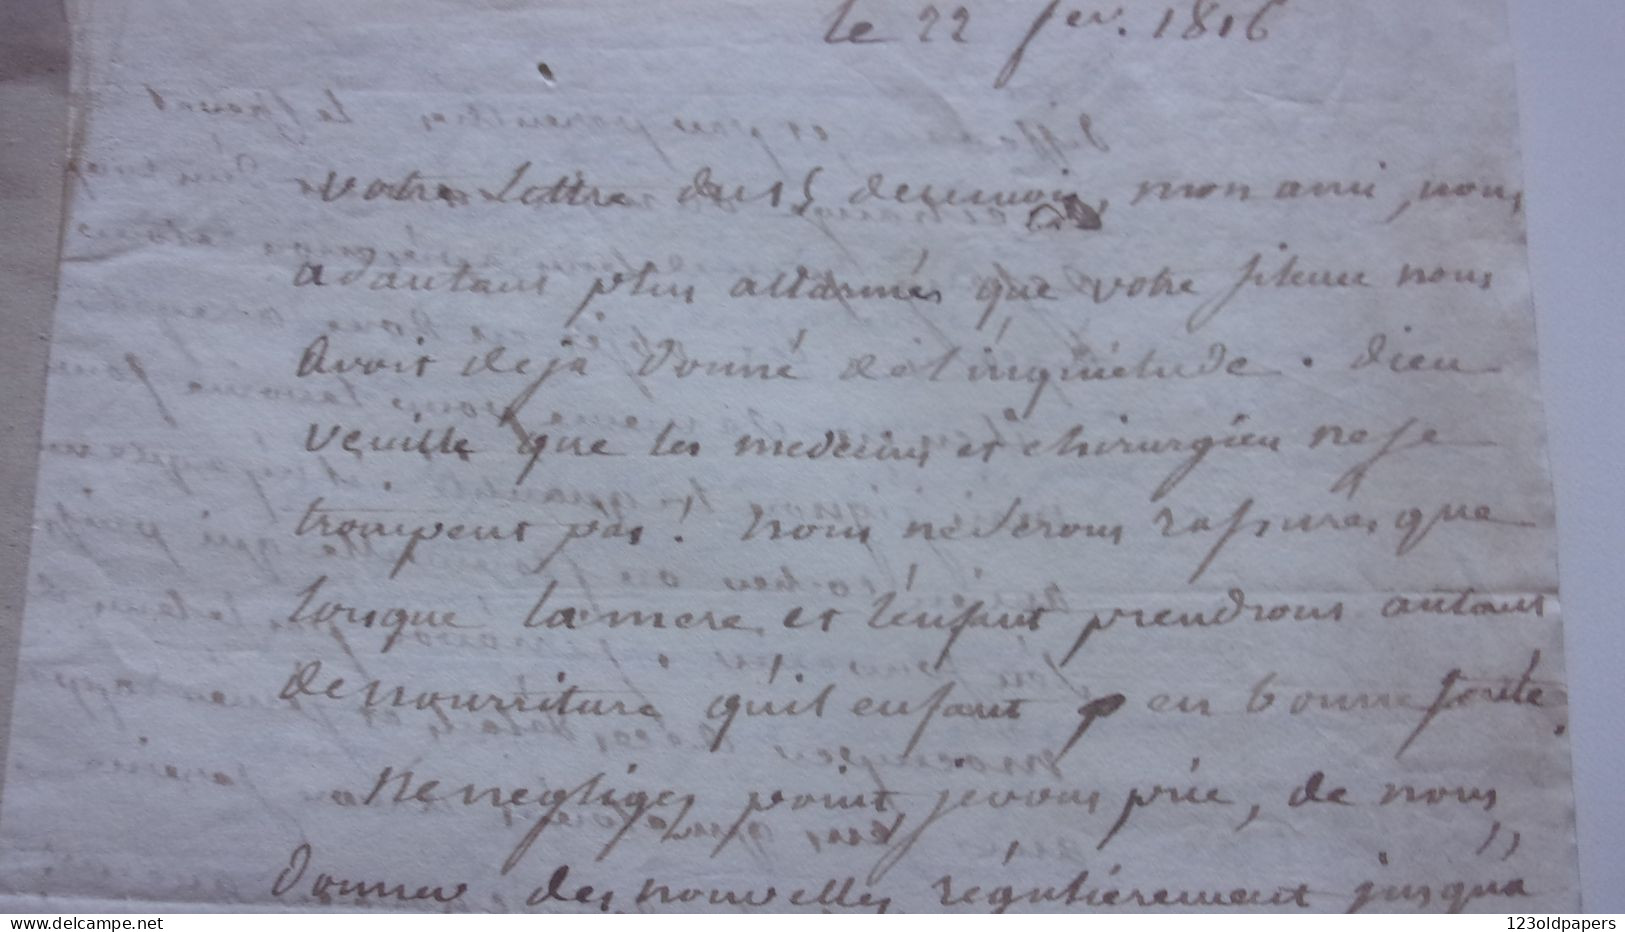 le 22 fev. 1816
votre Lettre du 15 de ce mois, mon ami, nous
a d'autant plus allarmés que votre silence nous
avoit deja donné de l'inquiétude. Dieu
veuille que les medecins et chirurgien ne se
trompent pas! nous ne serons rassurés que
lorsque la mere et l'enfant prendrons autant
de nourriture qu'il en faut p en bonne santé.
Ne negligez point, je vous prie, de nous
donner des nouvelles régulièrement jusqu'à
123oldpapers
www.delcampe.net